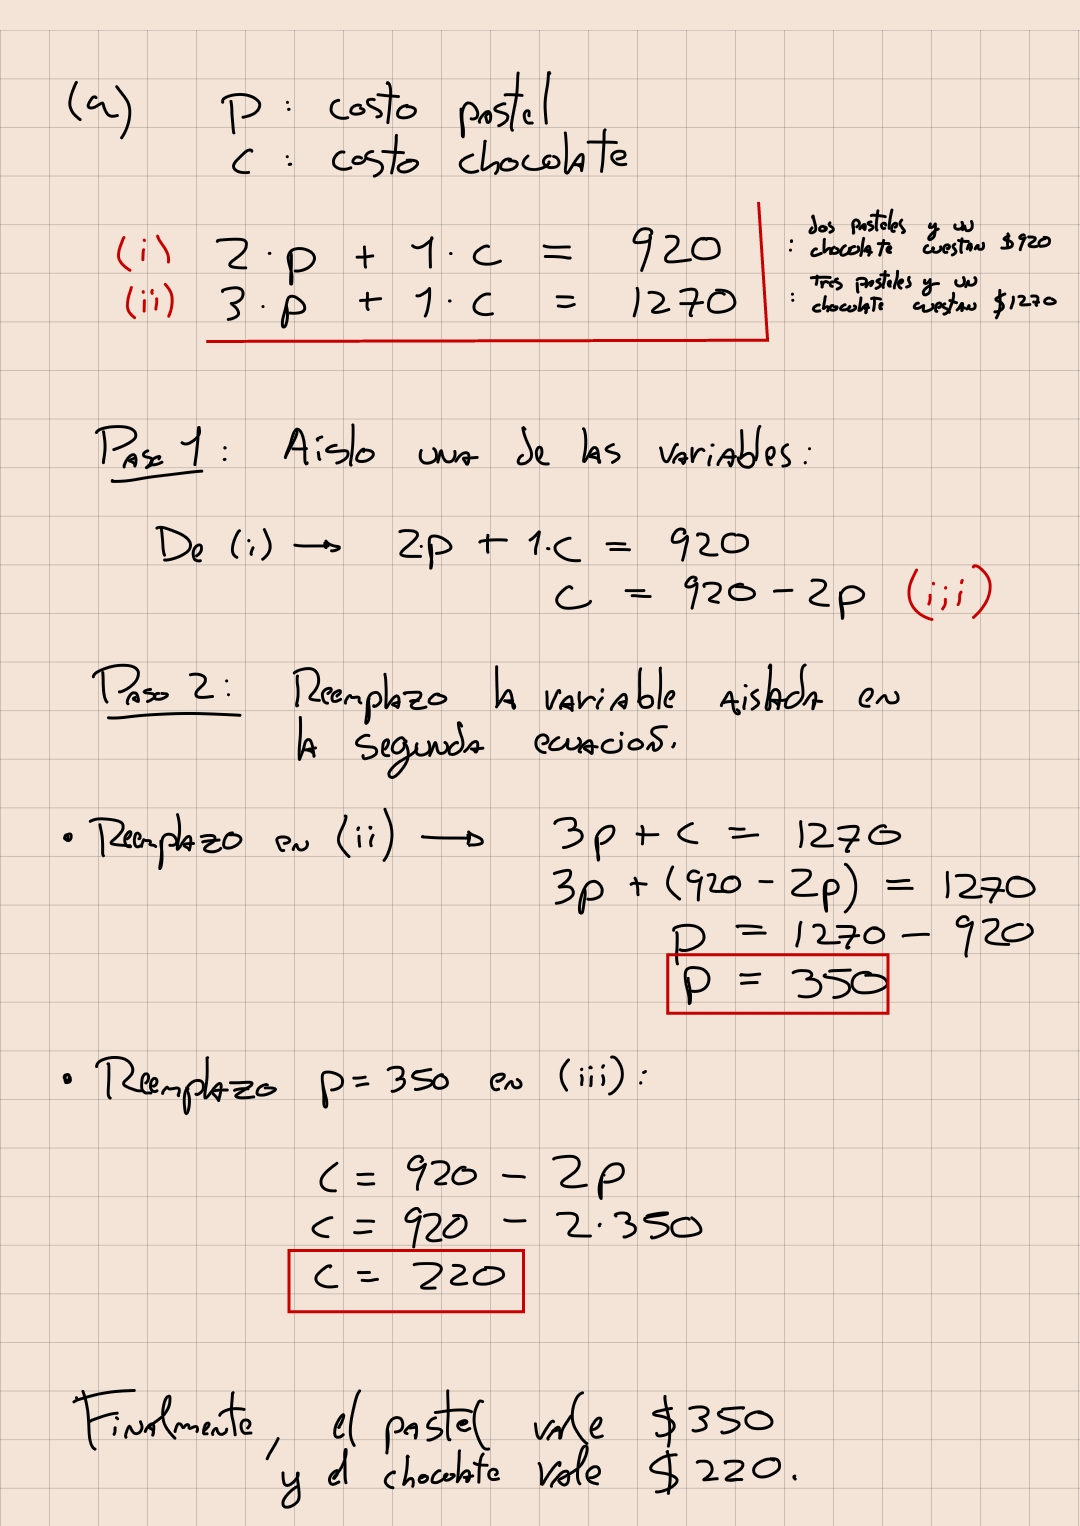 (a) P : costo pastel
c : costo chocolate
(i) 2·p + 1·c = 920 : dos pasteles y un chocolate cuestan $920
(ii) 3·p + 1·c = 1270 : tres pasteles y un chocolate cuestan $1270
Paso 1: Aislo una de las variables:
De (i) → 2·p + 1·c = 920
c = 920 - 2p (iii)
Paso 2: Reemplazo la variable aislada en
la segunda ecuación.
• Reemplazo en (ii) → 3p + c = 1270
3p + (920 - 2p) = 1270
p = 1270 - 920
p = 350
• Reemplazo p = 350 en (iii):
c = 920 - 2p
c = 920 - 2·350
c = 220
Finalmente, el pastel vale $350
y el chocolate vale $220.